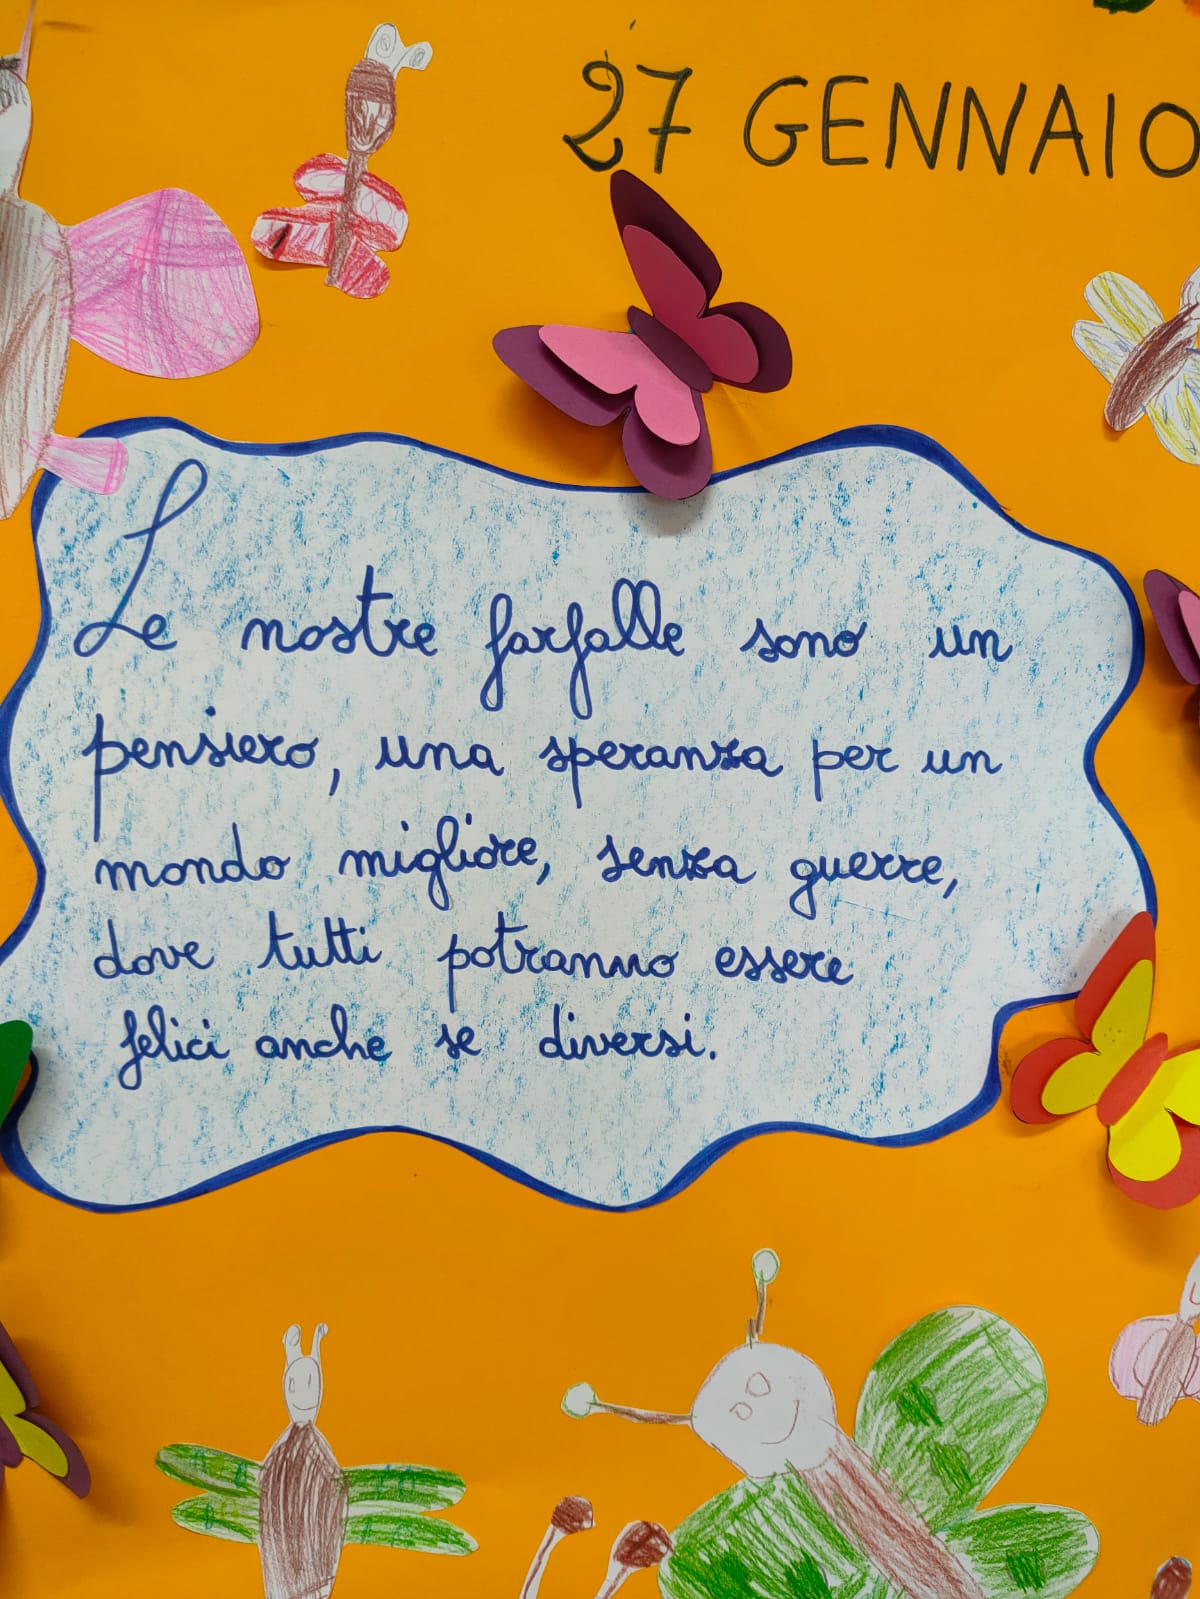 27 GENNAIO
Le nostre farfalle sono un
pensiero, una speranza per un
mondo migliore, senza guerre,
dove tutti potranno essere
felici anche se diversi.